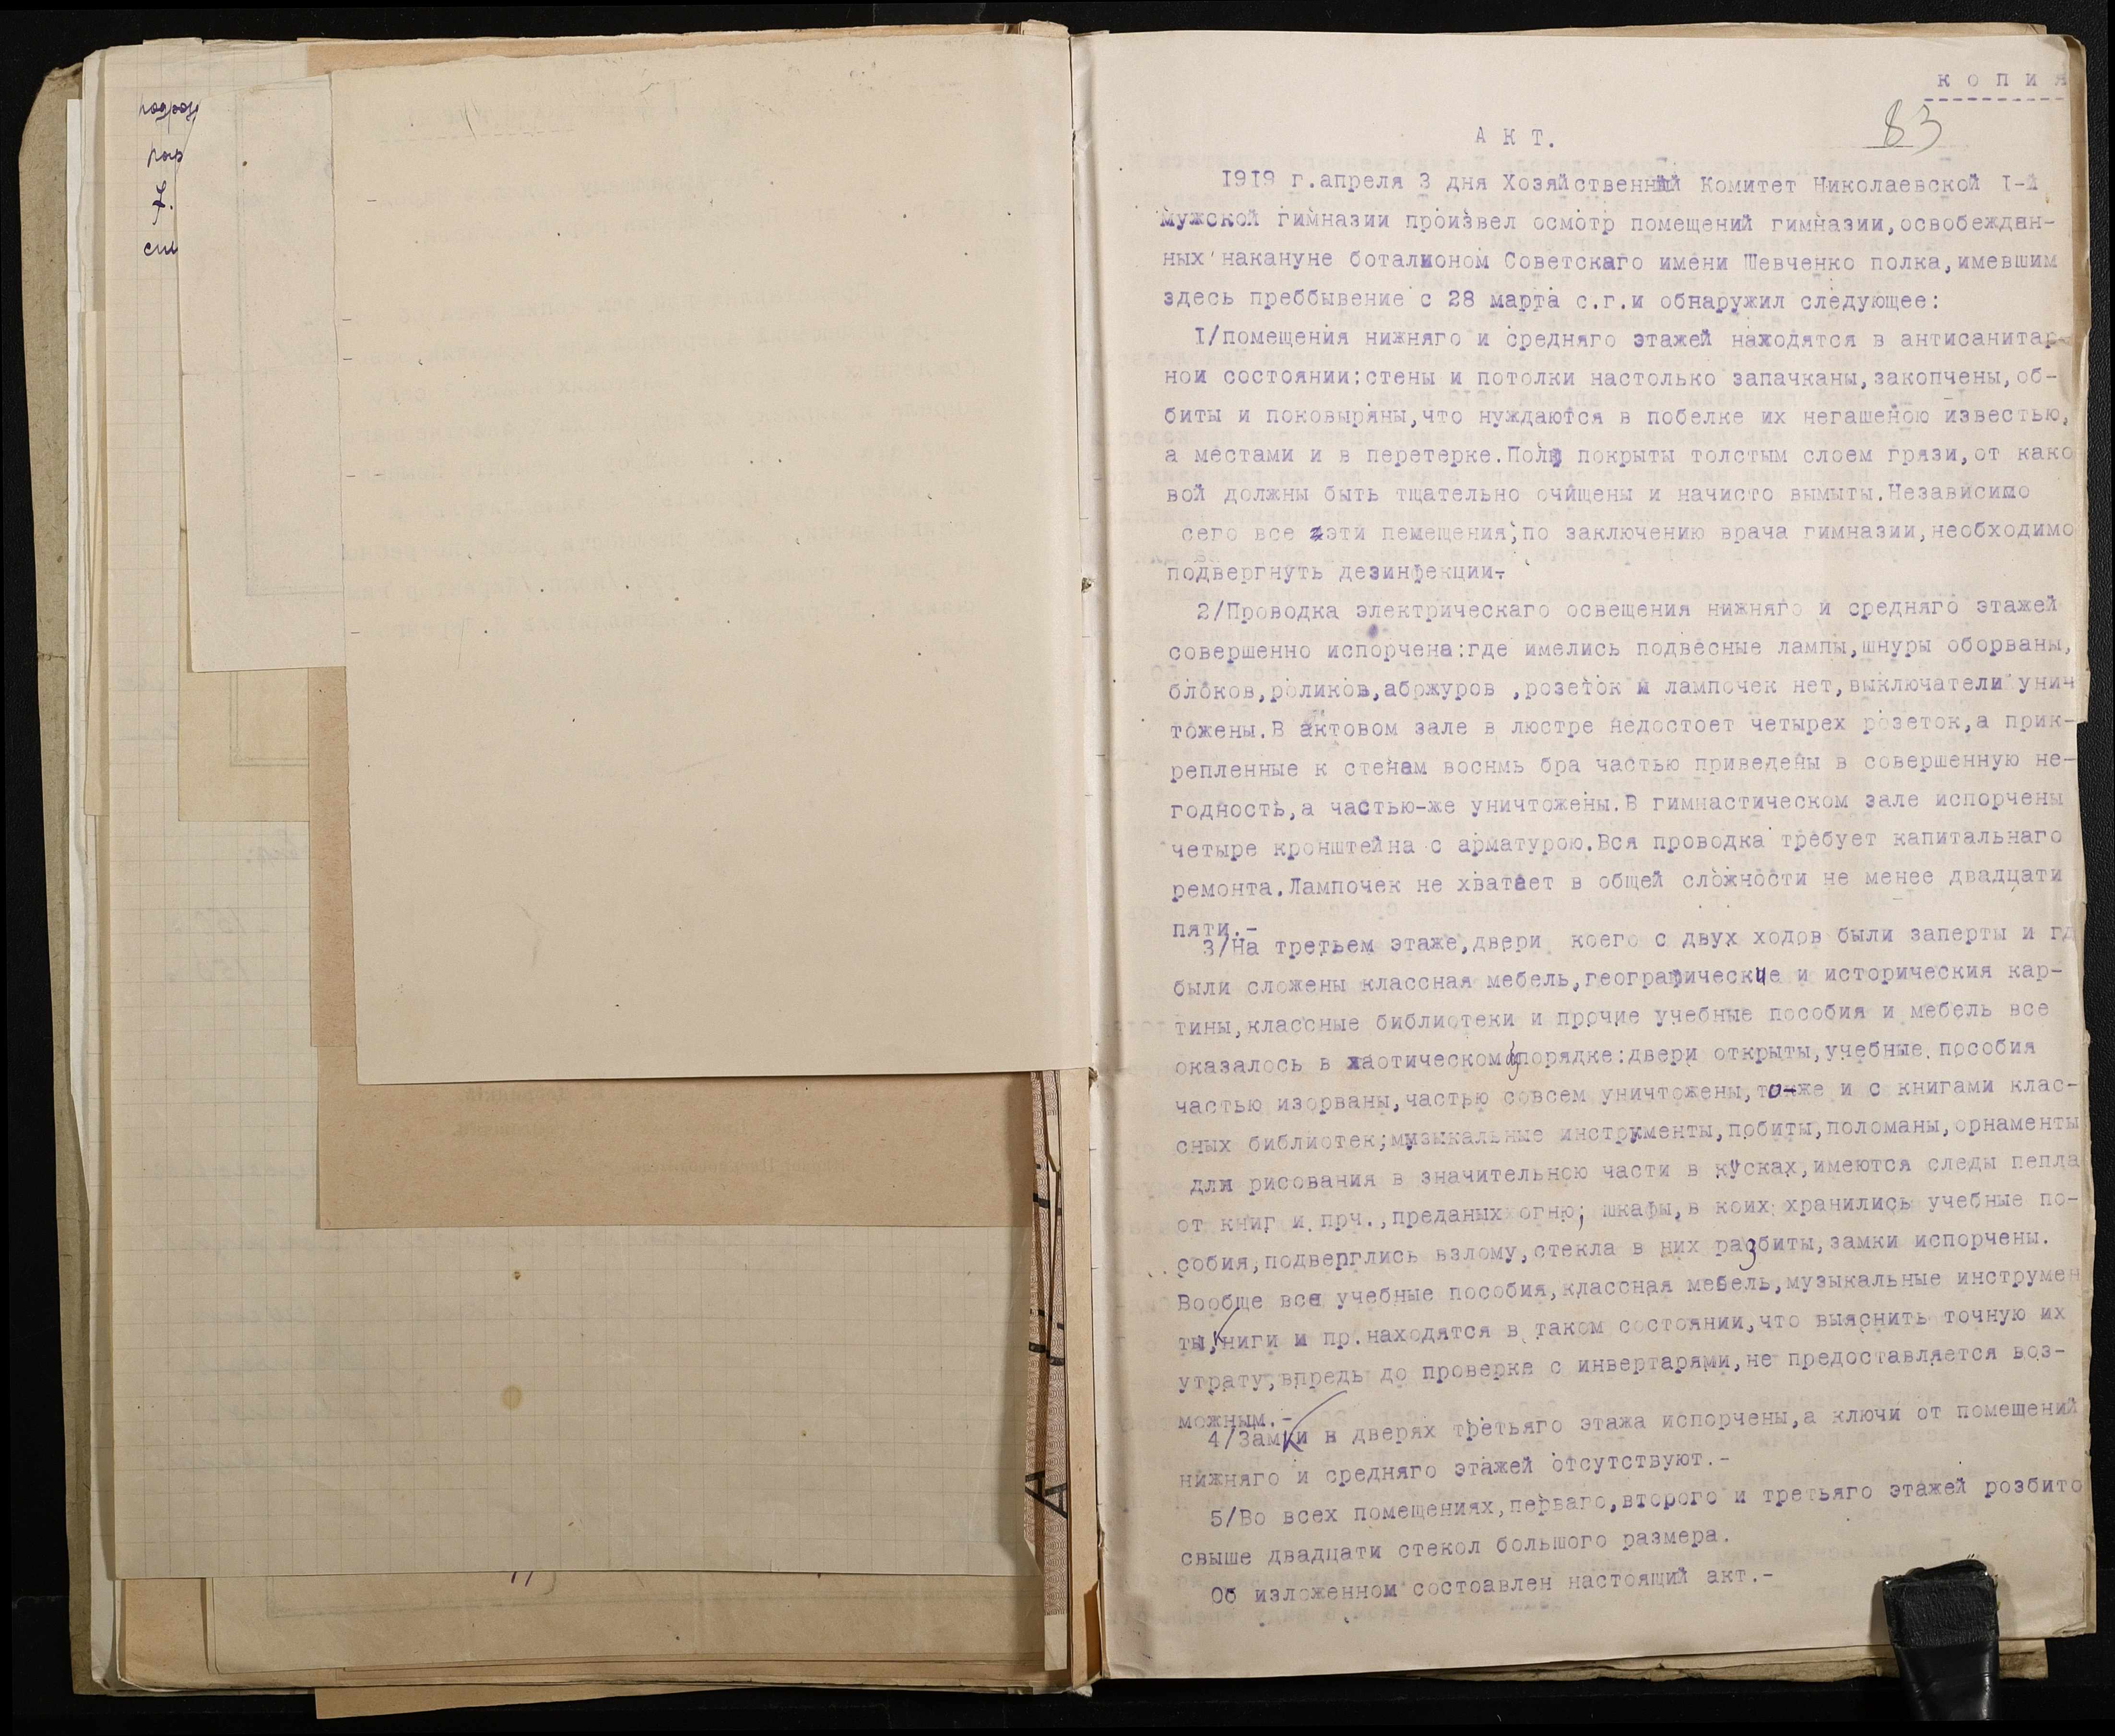 7.
копия
83
АКТ.
1919 г.апреля 3 дня Хозяйственный Комитет Николаевской I-й
мужской гимназии произвел осмотр помещений гимназии,освобежден-
ных накануне боталионом Советскаго имени Шевченко полка,имевшим
здесь преббывение с 28 марта с.г.и обнаружил следующее:
I/помещения нижняго и средняго этажей находятся в антисанитар-
нои состоянии:стены и потолки настолько запачканы,закопчены,об-
биты и поковыряны,что нуждаются в побелке их негашеною известью,
а местами и в перетерке.Полы покрыты толстым слоем грязи,от како
вой должны быть тщательно очищены и начисто вымыты.Независимо
сего все эти пемещения,по заключению врача гимназии,необходимо
подвергнуть дезинфекции-
2/Проводка электрическаго освещения нижняго и средняго этажей
совершенно испорчена:где имелись подвесные лампы,шнуры оборваны,
блоков,роликов,абржуров ,розеток и лампочек нет,выключатели унич
тожены.В актовом зале в люстре недостоет четырех розеток,а прик-
репленные к стенам воснмь бра частью приведены в совершенную не-
годность,а частью-же уничтожены.В гимнастическом зале испорчены
четыре кронштейна с арматурою.Вся проводка требует капитальнаго
ремонта.Лампочек не хватает в общей сложности не менее двадцати
пяти.-
3/На третьем этаже,двери коего с двух ходов были заперты и гд
были сложены классная мебель,географические и историческия кар-
тины,классные библиотеки и прочие учебные пособия и мебель все
оказалось в хаотическом порядке:двери открыты,учебные пособия
частью изорваны,частью совсем уничтожены,тоже и с книгами клас-
сных библиотек;музыкальные инструменты,побиты,поломаны,орнаменты
для рисования в значительною части в кусках,имеются следы пепла
от книг и прч.,преданых огню; шкафы,в коих хранились учебные по-
собия,подверглись взлому,стекла в них разбиты,замки испорчены.
Вообще все учебные пособия,классная мебель,музыкальные инструмен
ты,книги и пр.находятся в таком состоянии,что выяснить точную их
утрату,впредь до проверке с инвертарями,не предоставляется воз-
можным.-
4/Замки в дверях третьяго этажа испорчены,а ключи от помещений
нижняго и средняго этажей отсутствуют.-
5/Во всех помещениях,перваго,второго и третьяго этажей розбито
свыше двадцати стекол большого размера.
Об изложенном состоавлен настоящий акт.-